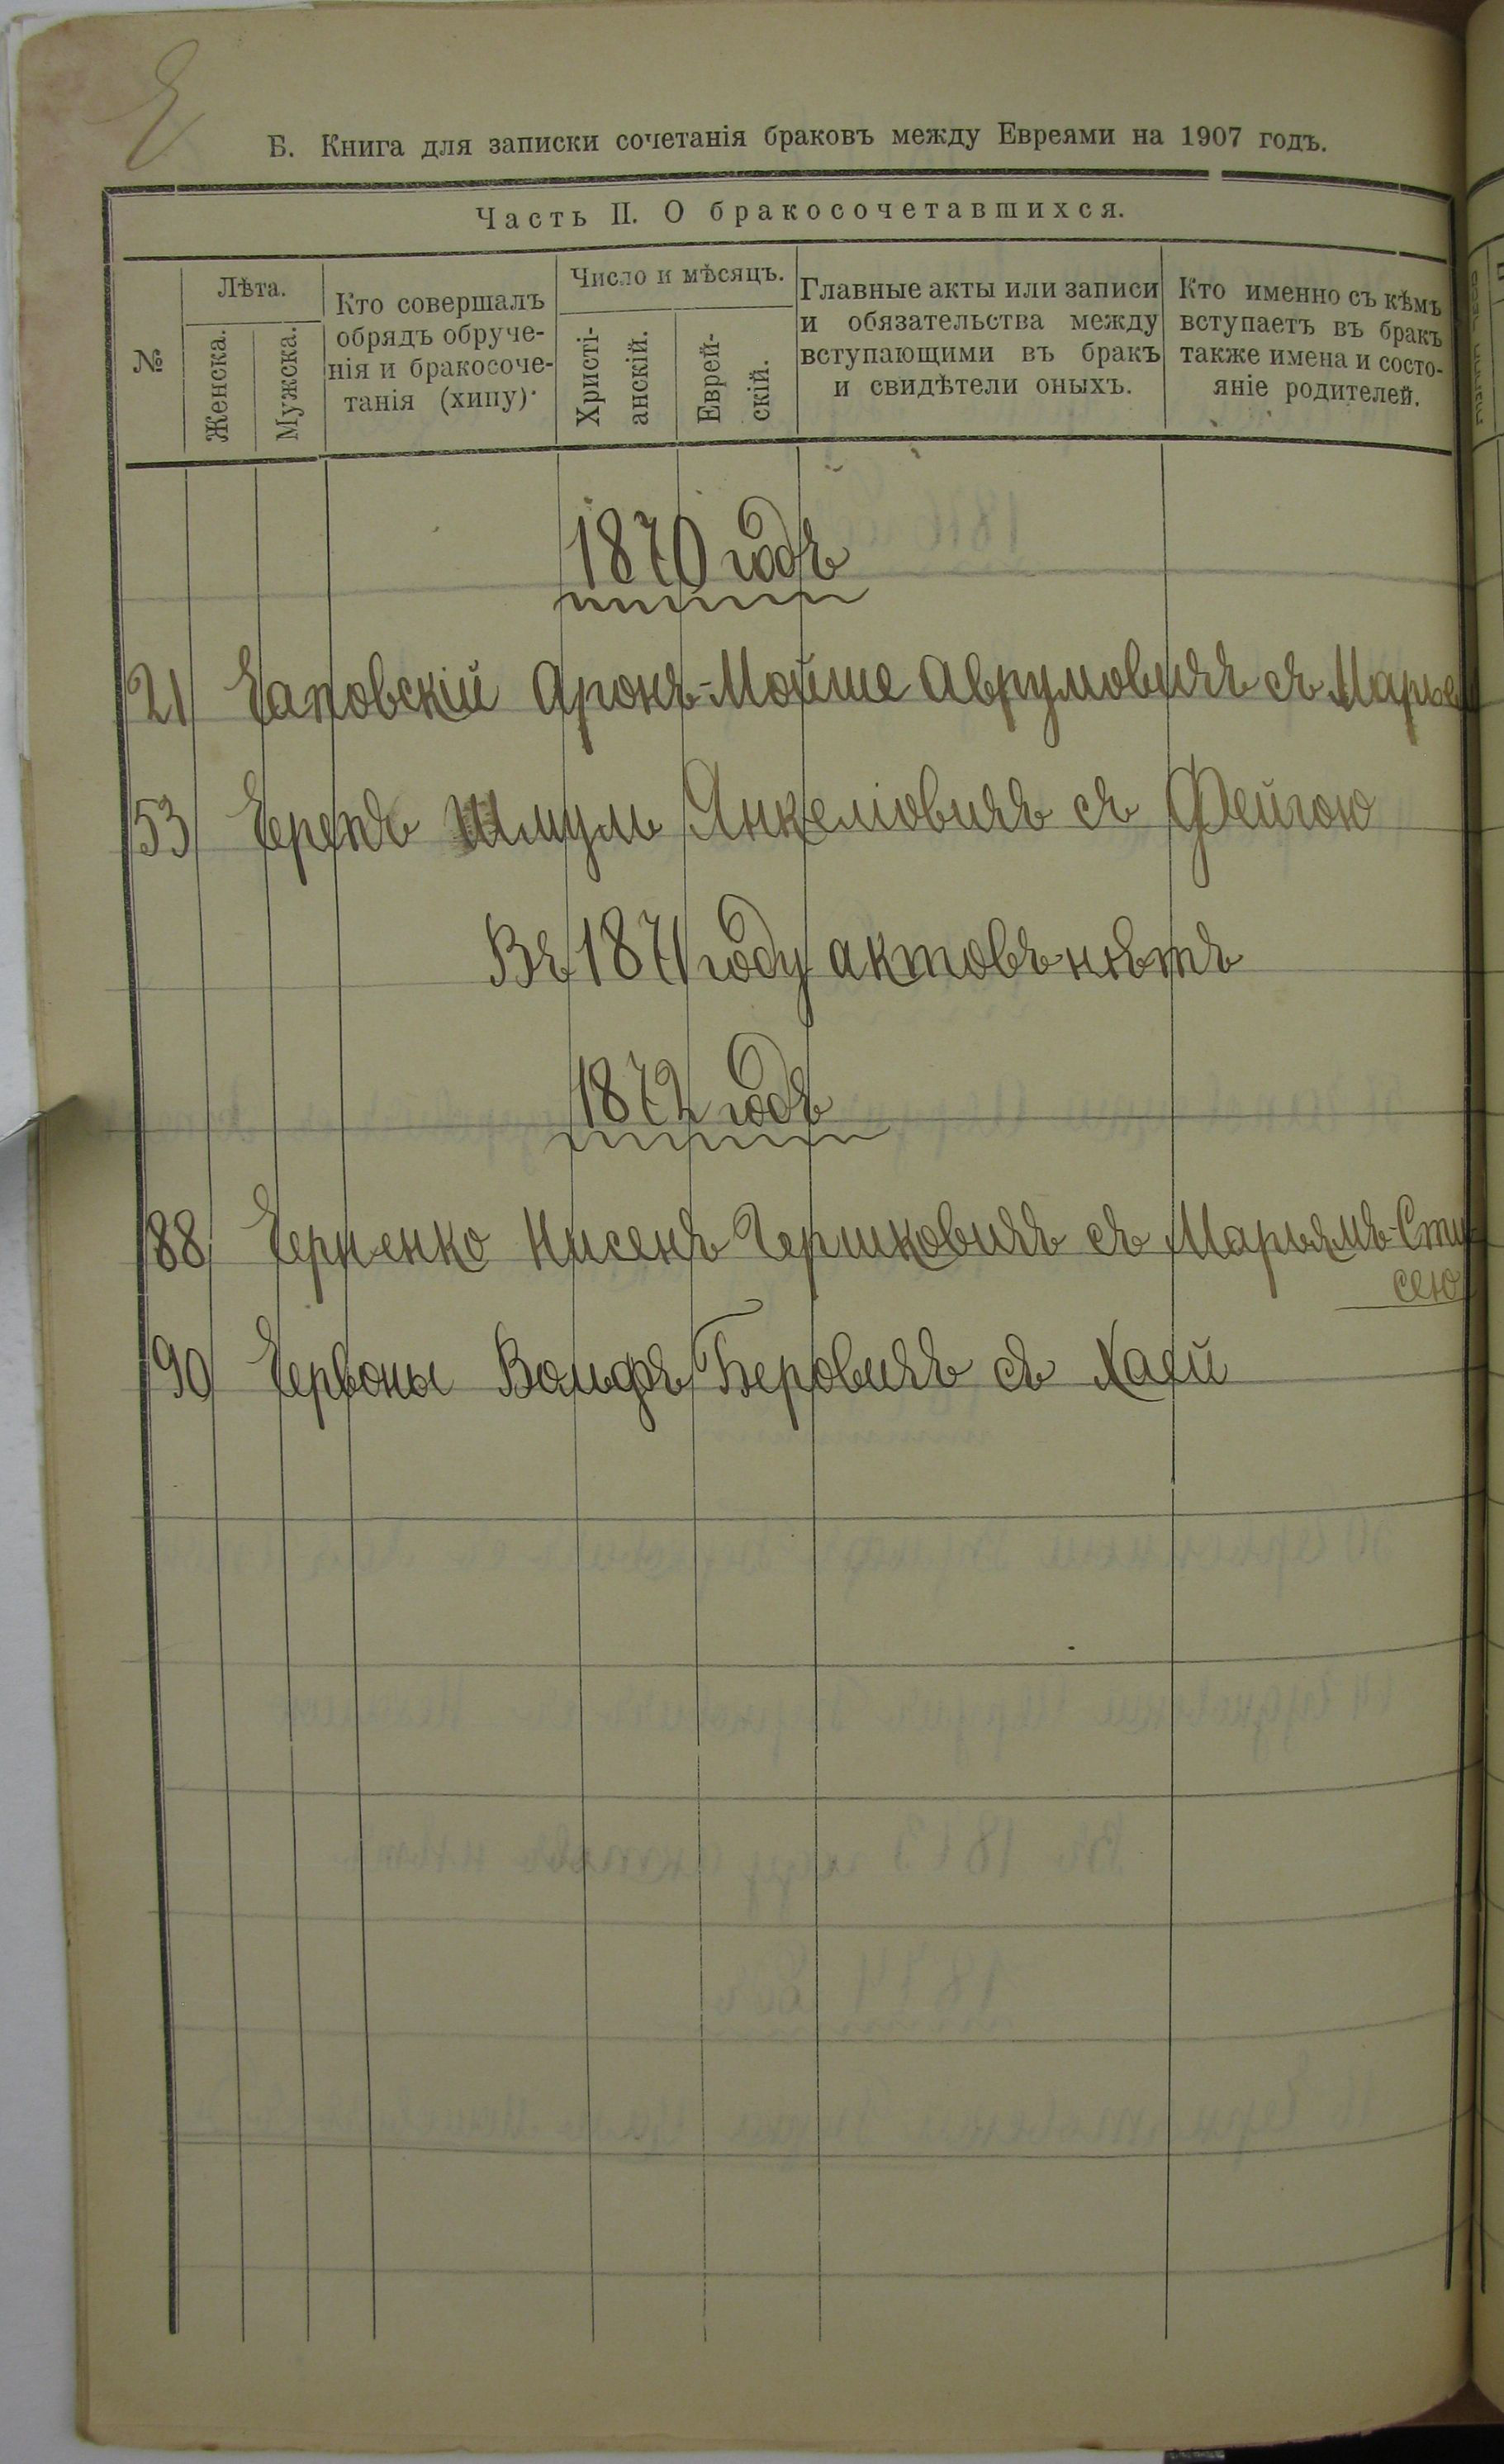 Ч
Б. Книга для записки сочетанія браковъ между Евреями на 1907 годъ.
Часть II. О бракосочетавшихся.
№
Лѣта.
Женска.
Мужска.
Кто совершалъ
обрядъ обруче-
нія и бракосоче-
танія (хипу).
Число и мѣсяцъ.
Христі-
анскій.
Еврей-
скій.
Главные акты или записи
и обязательства между
вступающими въ бракъ
и свидѣтели оныхъ.
Кто именно съ кѣмъ
вступаетъ въ бракъ
также имена и состо-
яніе родителей.
1870 годъ
21 Чаповскій Аронъ-Мойше Аврумовичъ съ
53 Черепъ Шмуль Янкеліовичъ съ Фейгою
Въ 1871 году актовъ нѣтъ
1872 годъ
88 Черненко Нисенъ Гершковичъ съ Марьямъ-Сти-
сею
90 Червоны Вольфъ Беровичъ съ Хаей